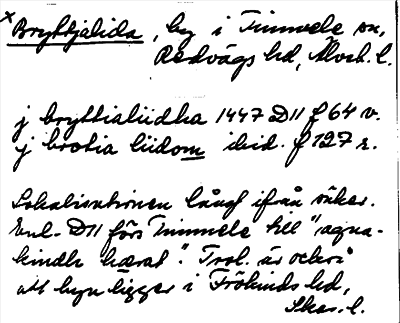 x Bryttjalida, by i Timmele sn,
Redvägs hd, Älvsb. l.
j bryttialiidha 1447 D11 f 64 v.
j brotia liidom ibid. f 127 r.
Lokalisationen långt ifrån säker.
Enl. D11 förs Timmele till "aqna-
kindh hærat". Trol. är också
att byn ligger i Frökinds hd,
Skar. l.